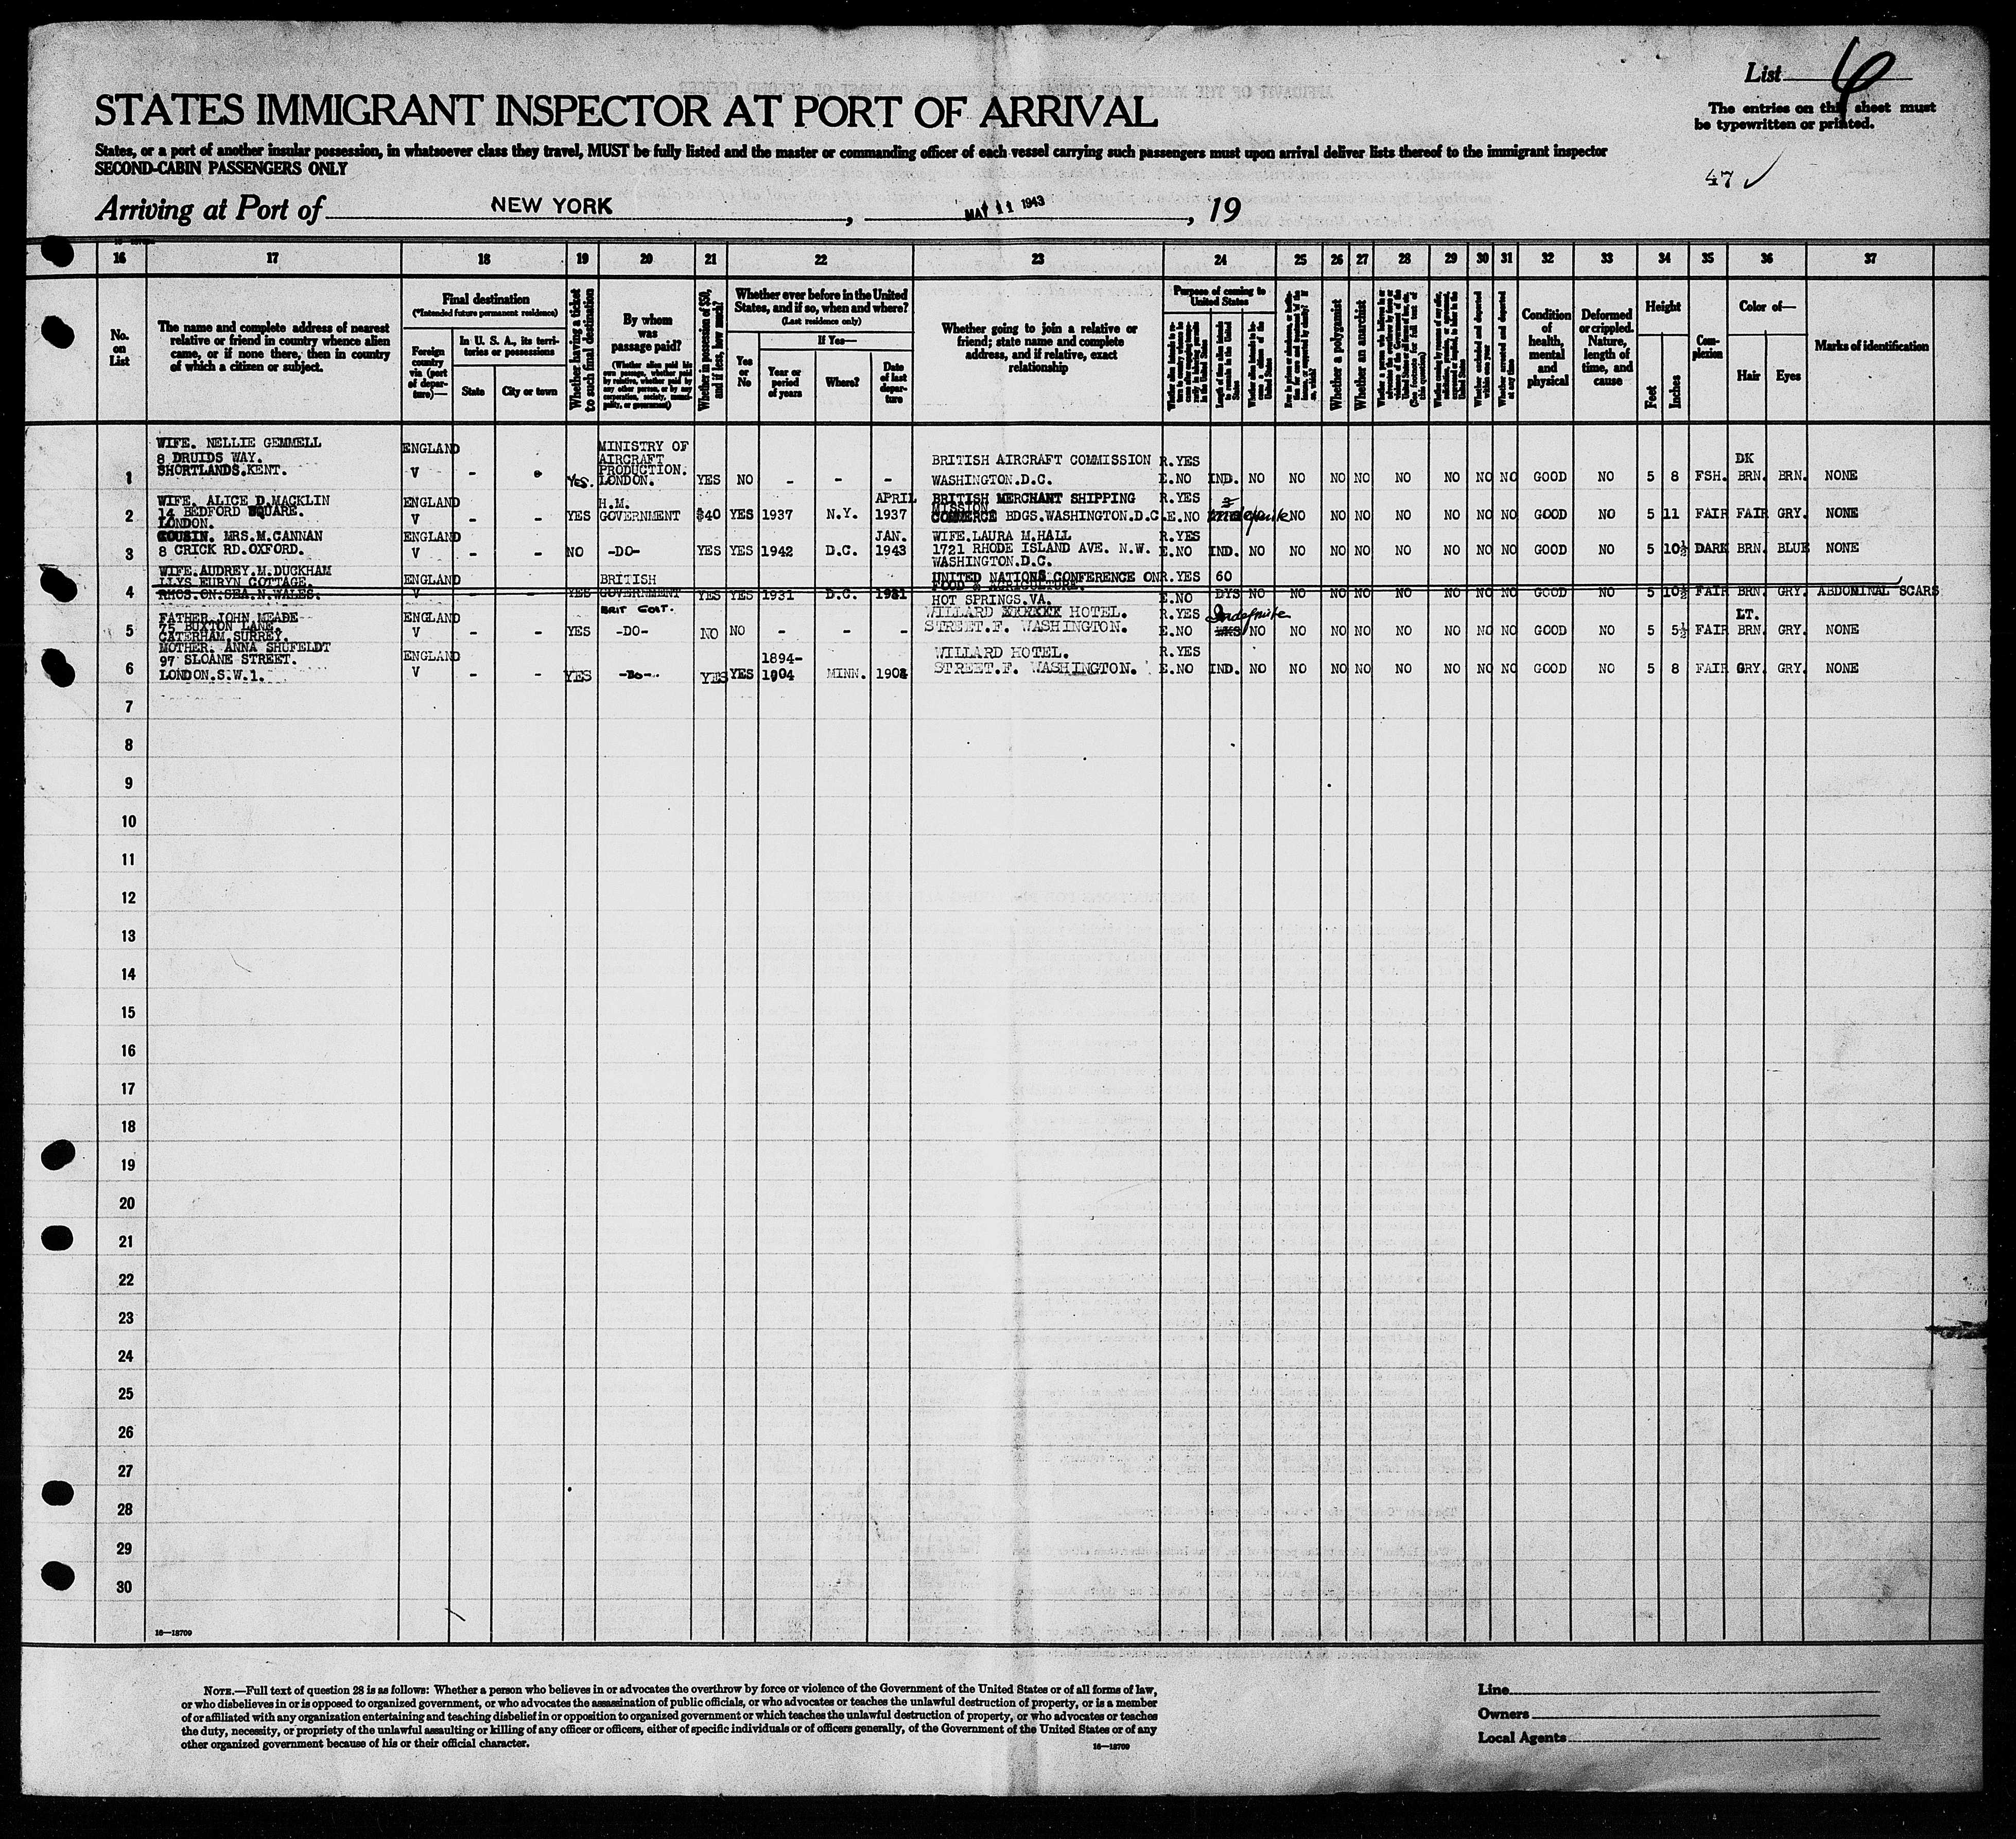 List 6
STATES IMMIGRANT INSPECTOR AT PORT OF ARRIVAL
The entries on this sheet must
be typewritten or printed.
States, or a port of another insular possession, in whatsoever class they travel, MUST be fully listed and the master or commanding officer of each vessel carrying such passengers must upon arrival deliver lists thereof to the immigrant inspector
SECOND-CABIN PASSENGERS ONLY
47 ✓
Arriving at Port of NEW YORK, MAY 11 1943, 19
16 17 18 19 20 21 22 23 24 25 26 27 28 29 30 31 32 33 34 35 36 37
No. on List
The name and complete address of nearest
relative or friend in country whence alien
came, or if none there, then in country
of which a citizen or subject.
Final destination
(*Intended future permanent residence)
Foreign country via (port of departure)—
In U. S. A., its territories or possessions
State
City or town
Whether having a ticket to such final destination
By whom was passage paid?
(Whether alien paid his own passage, whether paid by relative, whether paid by any other person, or by any corporation, society, municipality, or government)
Whether in possession of $50, and if less, how much?
Whether ever before in the United
States, and if so, when and where?
(Last residence only)
Yes or No
If Yes—
Year or period of years
Where?
Date of last departure
Whether going to join a relative or
friend; state name and complete
address, and if relative, exact
relationship
Purpose of coming to United States
Length of time alien intends to remain in the United States
Whether a polygamist
Whether an anarchist
Whether arrested and deported at any time
Condition of health, mental and physical
Deformed or crippled. Nature, length of time, and cause
Height
Feet
Inches
Complexion
Color of—
Hair
Eyes
Marks of identification
1 WIFE. NELLIE GEMMELL
8 DRUIDS WAY.
SHORTLANDS.KENT.
ENGLAND V - - YES. MINISTRY OF AIRCRAFT PRODUCTION. LONDON. YES NO - - - BRITISH AIRCRAFT COMMISSION WASHINGTON.D.C. R.YES E.NO IND. NO NO NO NO NO NO NO NO GOOD NO 5 8 FSH. DK BRN. BRN. NONE
2 WIFE. ALICE D.MACKLIN
14 BEDFORD SQUARE.
LONDON.
ENGLAND V - - YES H.M. GOVERNMENT $40 YES 1937 N.Y. APRIL 1937 BRITISH MERCHANT SHIPPING MISSION COMMERCE BDGS.WASHINGTON.D.C. R.YES E.NO Indefinite NO NO NO NO NO NO NO NO GOOD NO 5 11 FAIR FAIR GRY. NONE
3 COUSIN. MRS.M.CANNAN
8 CRICK RD.OXFORD.
ENGLAND V - - NO -DO- YES YES 1942 D.C. JAN. 1943 WIFE.LAURA M.HALL 1721 RHODE ISLAND AVE. N.W. WASHINGTON.D.C. R.YES E.NO IND. NO NO NO NO NO NO NO NO GOOD NO 5 10½ DARK BRN. BLUE NONE
4 WIFE.AUDREY.M.DUCKHAM
LLYS EURYN COTTAGE.
RHOS.ON.SEA.N.WALES.
ENGLAND V - - YES BRITISH GOVERNMENT YES YES 1931 D.C. 1931 UNITED NATIONS CONFERENCE ON FOOD & AGRICULTURE. HOT SPRINGS.VA. R.YES E.NO 60 DYS NO NO NO NO NO NO NO NO GOOD NO 5 10½ FAIR BRN. GRY. ABDOMINAL SCARS
5 FATHER.JOHN MEADE
75 BUXTON LANE.
CATERHAM.SURREY.
ENGLAND V - - YES BRIT GOVT. -DO- NO NO - - - WILLARD XXXXXX HOTEL. STREET.F. WASHINGTON. R.YES E.NO Indefinite WKS NO NO NO NO NO NO NO NO GOOD NO 5 5½ FAIR LT. BRN. GRY. NONE
6 MOTHER. ANNA SHUFELDT
97 SLOANE STREET.
LONDON.S.W.1.
ENGLAND V - - YES -DO-. YES YES 1894-1904 MINN. WILLARD HOTEL. STREET.F. WASHINGTON. R.YES E.NO IND. NO NO NO NO NO NO NO NO GOOD NO 5 8 FAIR GRY. GRY. NONE
7
8
9
10
11
12
13
14
15
16
17
18
19
20
21
22
23
24
25
26
27
28
29
30
16—18709
NOTE.—Full text of question 28 is as follows: Whether a person who believes in or advocates the overthrow by force or violence of the Government of the United States or of all forms of law,
or who disbelieves in or is opposed to organized government, or who advocates the assassination of public officials, or who advocates or teaches the unlawful destruction of property, or is a member
of or affiliated with any organization entertaining and teaching disbelief in or opposition to organized government or which teaches the unlawful destruction of property, or who advocates or teaches
the duty, necessity, or propriety of the unlawful assaulting or killing of any officer or officers, either of specific individuals or of officers generally, of the Government of the United States or of any
other organized government because of his or their official character.
16—18709
Line
Owners
Local Agents